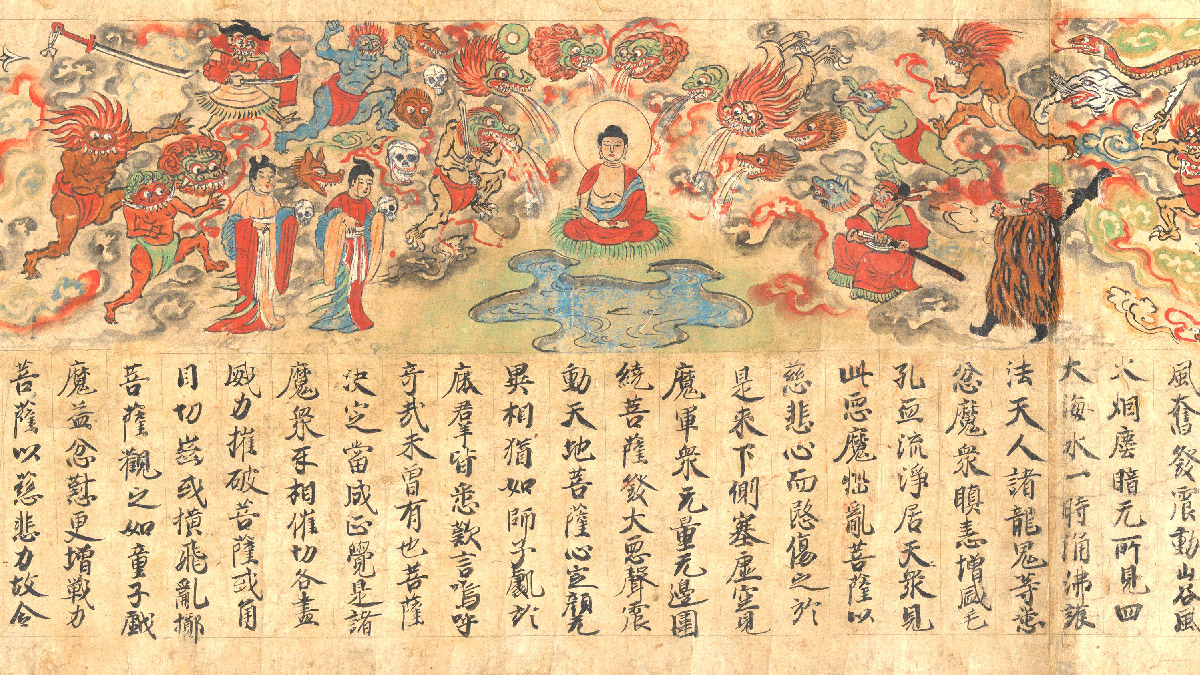 風奮發震動山谷風
火烟塵暗无所見四
大海水一時涌沸護
法天人諸龍鬼等悉
忿魔衆瞋恚增威毛
孔血流淨居天衆見
此惡魔惱亂菩薩以
慈悲心而愍傷之於
是來下側塞虛空見
魔軍衆无量无邊圍
繞菩薩發大惡聲震
動天地菩薩心定顏无
異相猶如師子處於
鹿羣皆悉歎言嗚呼
奇哉未曾有也菩薩
決定當成正覺是諸
魔衆互相催切各盡
威力摧破菩薩或角
目切齒或橫飛亂擲
菩薩觀之如童子戲
魔益忿懟更增戰力
菩薩以慈悲力故令